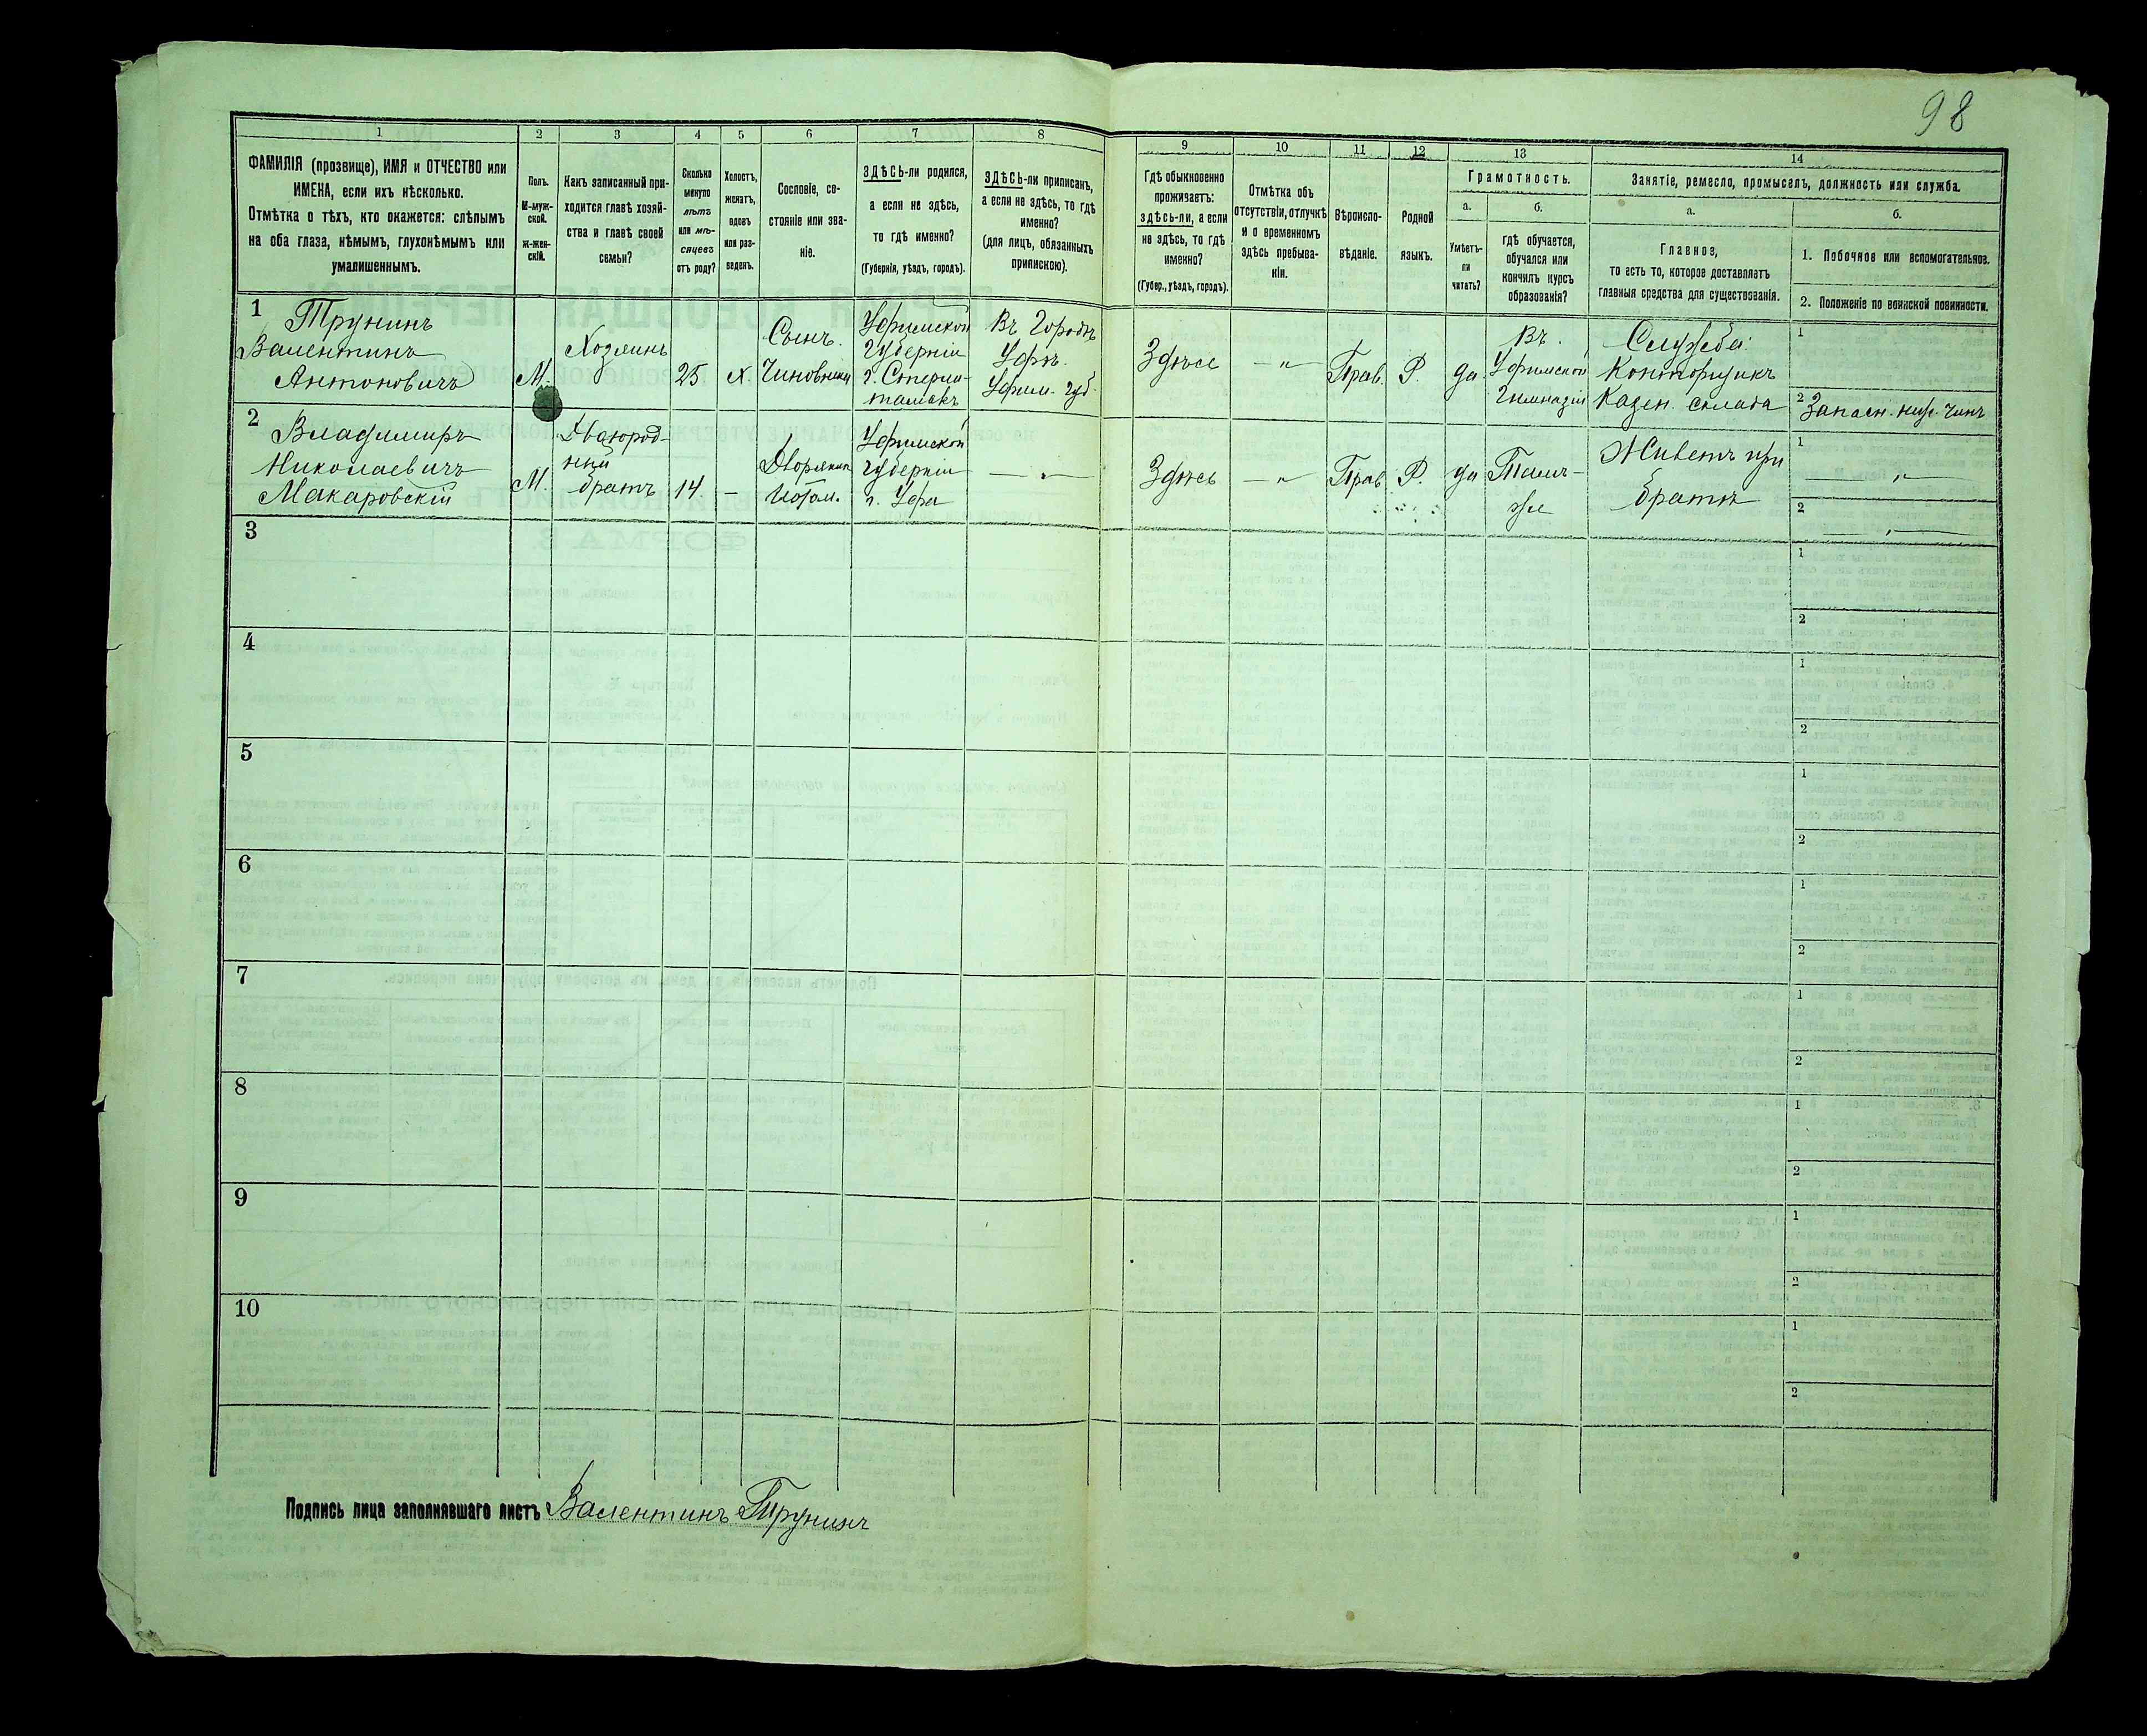 98
1
2
3
4
5
6
7
8
9
10
11
12
13
14
ФАМИЛІЯ (прозвище), ИМЯ и ОТЧЕСТВО или
ИМЕНА, если ихъ нѣсколько.
Отмѣтка о тѣхъ, кто окажется: слѣпымъ
на оба глаза, нѣмымъ, глухонѣмымъ или
умалишеннымъ.
Полъ.
М-муж-
ской.
ж-жен-
скій.
Какъ записанный при-
ходится главѣ хозяй-
ства и главѣ своей
семьи?
Сколько
минуло
лѣтъ
или мѣ-
сяцевъ
отъ роду?
Холостъ,
женатъ,
вдовъ
или раз-
веденъ.
Сословіе, со-
стояніе или зва-
ніе.
ЗДѢСЬ-ли родился,
а если не здѣсь,
то гдѣ именно?
(Губернія, уѣздъ, городъ).
ЗДѢСЬ-ли приписанъ,
а если не здѣсь, то гдѣ
именно?
(для лицъ, обязанныхъ
припискою).
Гдѣ обыкновенно
проживаетъ:
здѣсь-ли, а если
не здѣсь, то гдѣ
именно?
(Губер., уѣздъ, городъ).
Отмѣтка объ
отсутствіи, отлучкѣ
и о временномъ
здѣсь пребыва-
ніи.
Вѣроиспо-
вѣданіе.
Родной
языкъ.
Грамотность.
а.
Умѣетъ-
ли
читать?
б.
гдѣ обучается,
обучался или
кончилъ курсъ
образованія?
Занятіе, ремесло, промыселъ, должность или служба.
а.
Главное,
то есть то, которое доставляетъ
главныя средства для существованія.
б.
1. Побочное или вспомогательное.
2. Положеніе по воинской повинности.
1
Трунинъ
Валентинъ
Антоновичъ
М.
Хозяинъ
25
х.
Сынъ.
Чиновника
Уфимской
Губерніи
г. Стерли-
тамакъ
Въ Городѣ
Уфѣ.
Уфим. губ.
Здѣсь
— „
Прав.
Р.
да
Въ.
Уфимской
Гимназіи
Служба:
Конторщикъ
Казен. склада
1
2 Запасн. ниж. чинъ
2
Владимиръ
Николаевичъ
Макаровскій
М.
Двоюрод-
ный
братъ
14
—
Дворянин
Потом.
Уфимской
губерніи
г. Уфа
— „ —
Здѣсь
— „
Прав
Р.
да
Тамъ-
же
Живетъ при
братѣ
1
— „ —
2
— „ —
3
1
2
4
1
2
5
1
2
6
1
2
7
1
2
8
1
2
9
1
2
10
1
2
Подпись лица заполнявшаго листъ Валентинъ Трунинъ